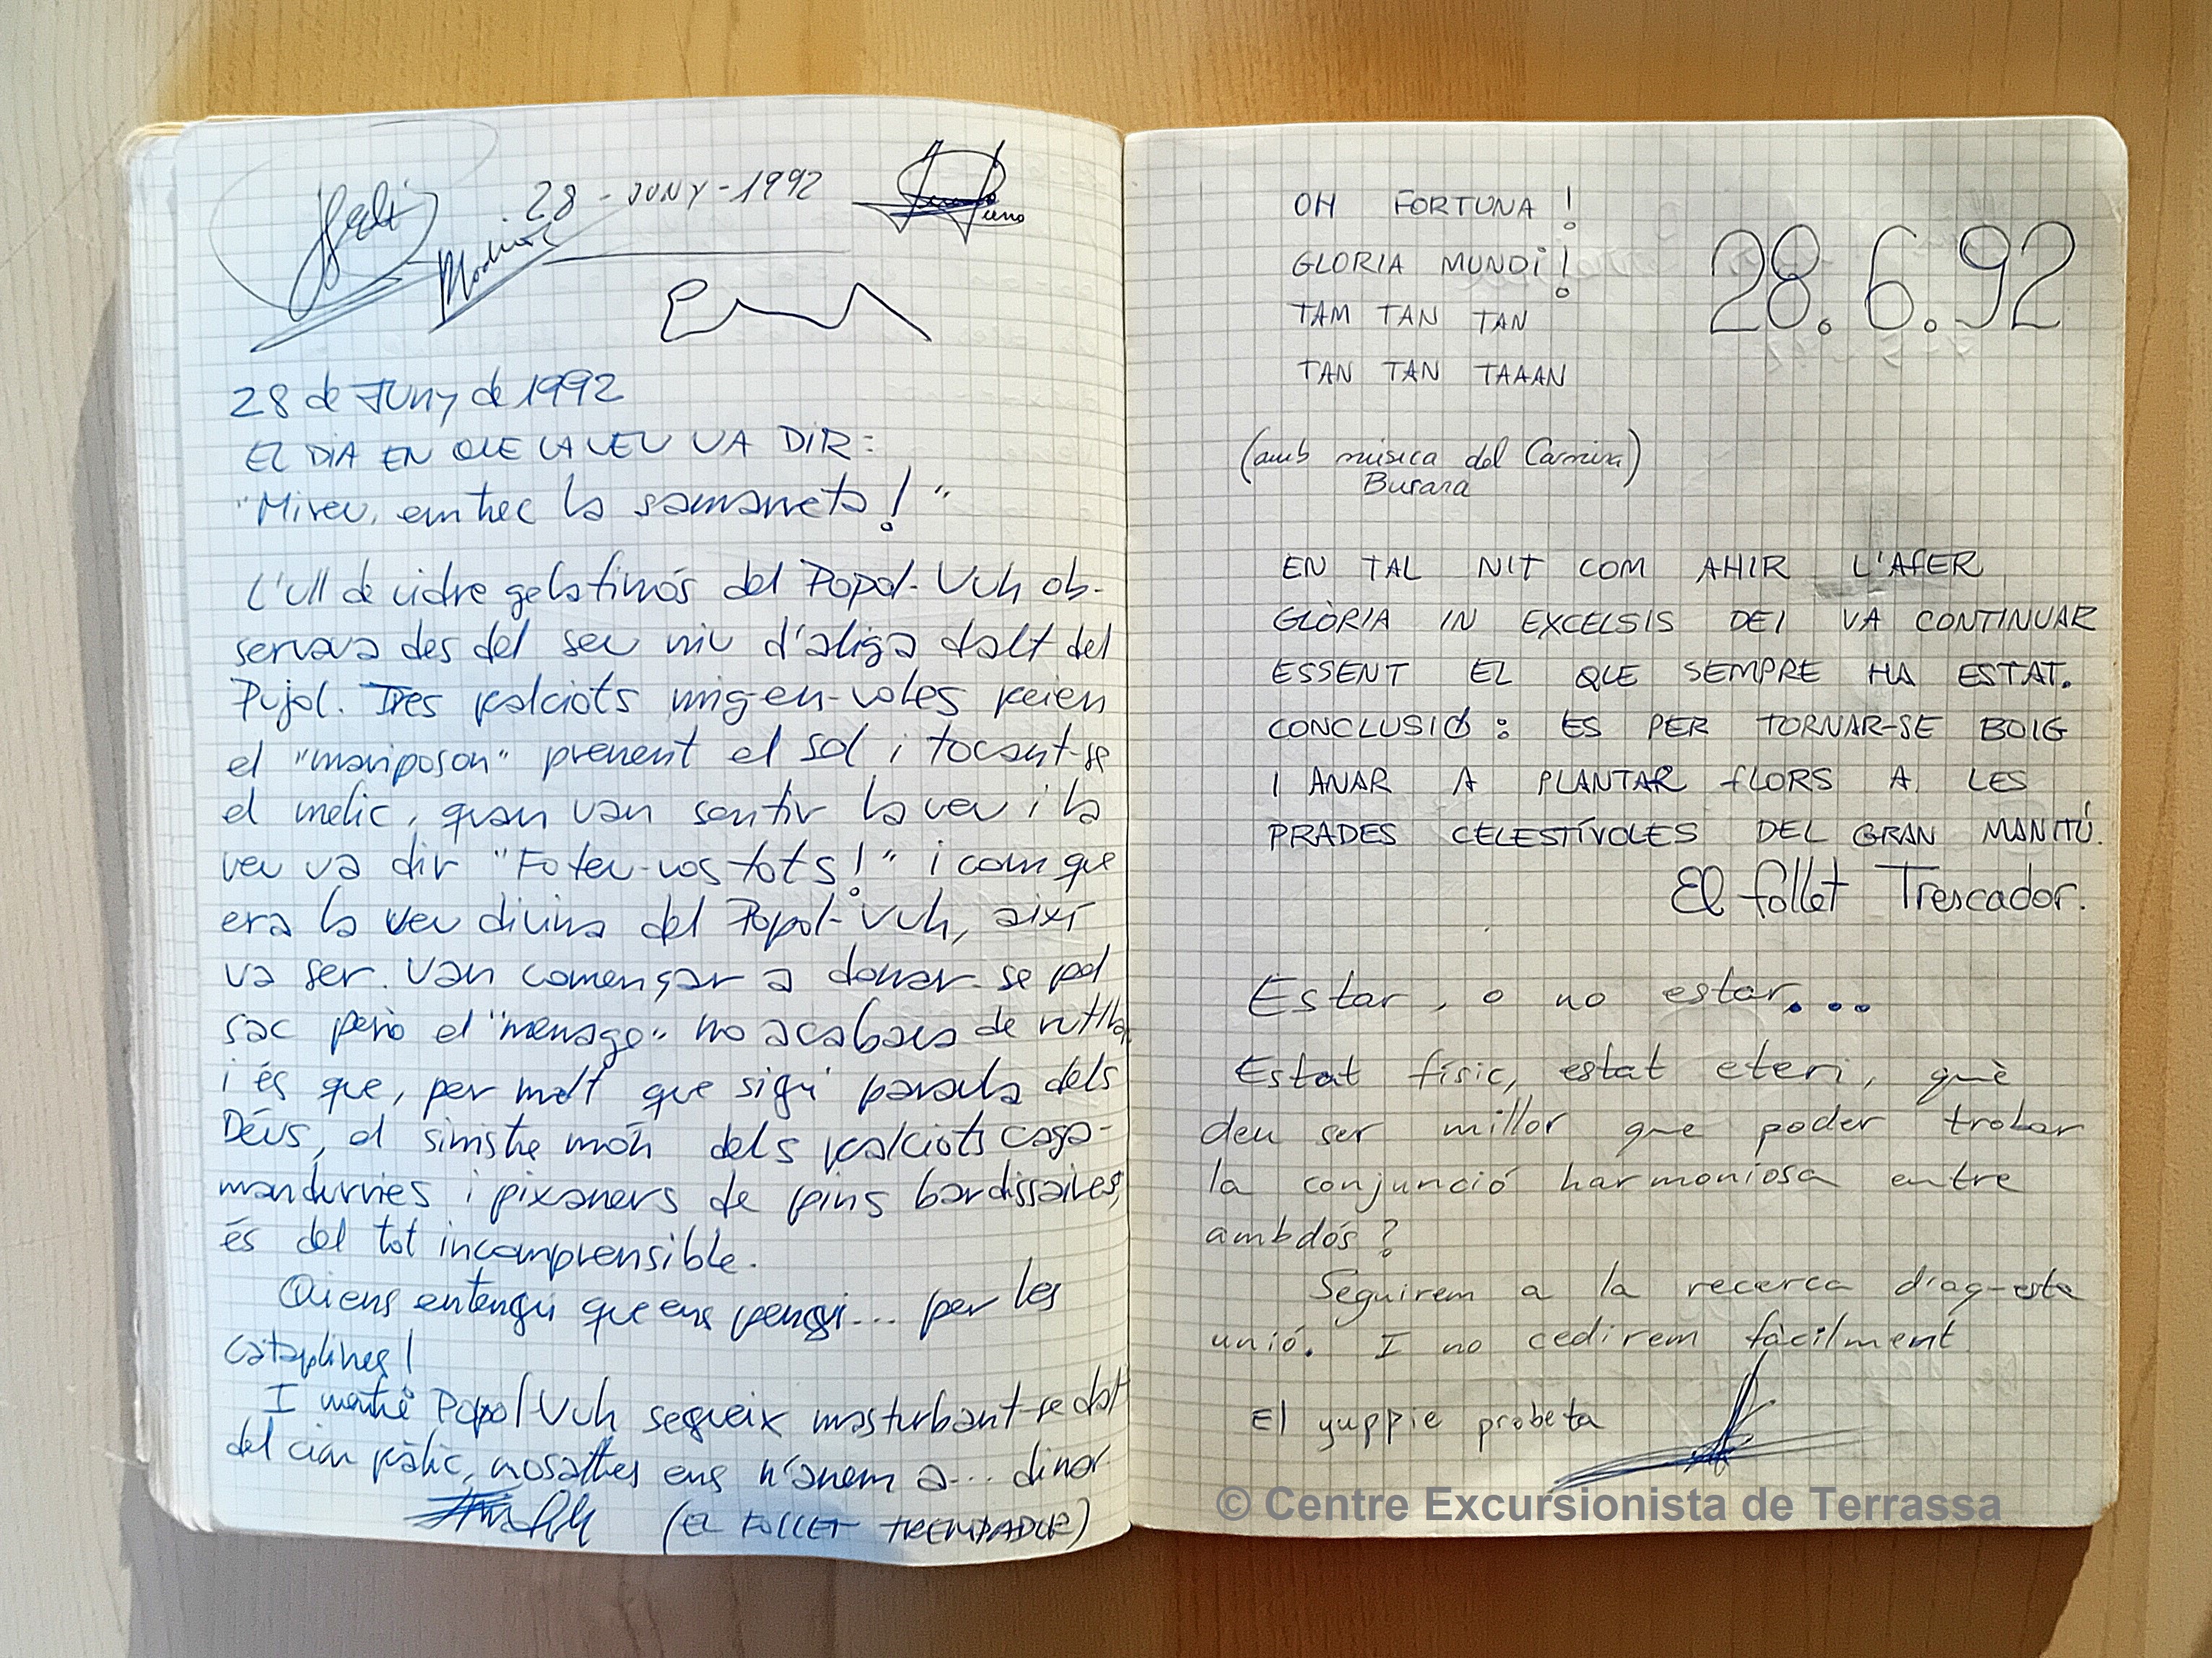 28 - JUNY - 1992
28 de JUNY de 1992
EL DIA EN QUE LA VEU VA DIR:
"Mireu, em trec la samarreta!"
L'ull de vidre gelatinós del Popol-Vuh ob-
servava des del seu niu d'aliga dalt del
Pujol. Tres kalciots mig-en-voles feien
el "mariposon" prenent el sol i tocant-se
el melic, quan van sentir la veu i la
veu va dir "Foteu-vos tots!" i com que
era la veu divina del Popol-Vuh, així
va ser. Van començar a donar-se pel
sac però el "menage" no acabava de rutllar
i és que, per molt que sigui paraula dels
Déus, el sinistre món dels kalciots caga-
mandurries i pixaners de pins bardissaires,
és del tot incomprensible.
Qui ens entengui que ens pengi... per les
cataplines!
I mentre Popol Vuh segueix masturbant-se dalt
del cim fàl·lic, nosaltres ens n'anem a... dinar
(EL FOLLET TREMPADOR)
OH FORTUNA!
GLORIA MUNDI!
28.6.92
TAM TAN TAN
TAN TAN TAAAN
(amb música del Carmina)
Burana
EN TAL NIT COM AHIR L'AFER
GLÒRIA IN EXCELSIS DEI VA CONTINUAR
ESSENT EL QUE SEMPRE HA ESTAT.
CONCLUSIÓ: ES PER TORNAR-SE BOIG
I ANAR A PLANTAR FLORS A LES
PRADES CELESTÍVOLES DEL GRAN MANITÚ.
El follet Trescador.
Estar, o no estar...
Estat físic, estat eteri, què
deu ser millor que poder trobar
la conjunció harmoniosa entre
ambdós?
Seguirem a la recerca d'aq-esta
unió. I no cedirem fàcilment
El yuppie probeta
© Centre Excursionista de Terrassa